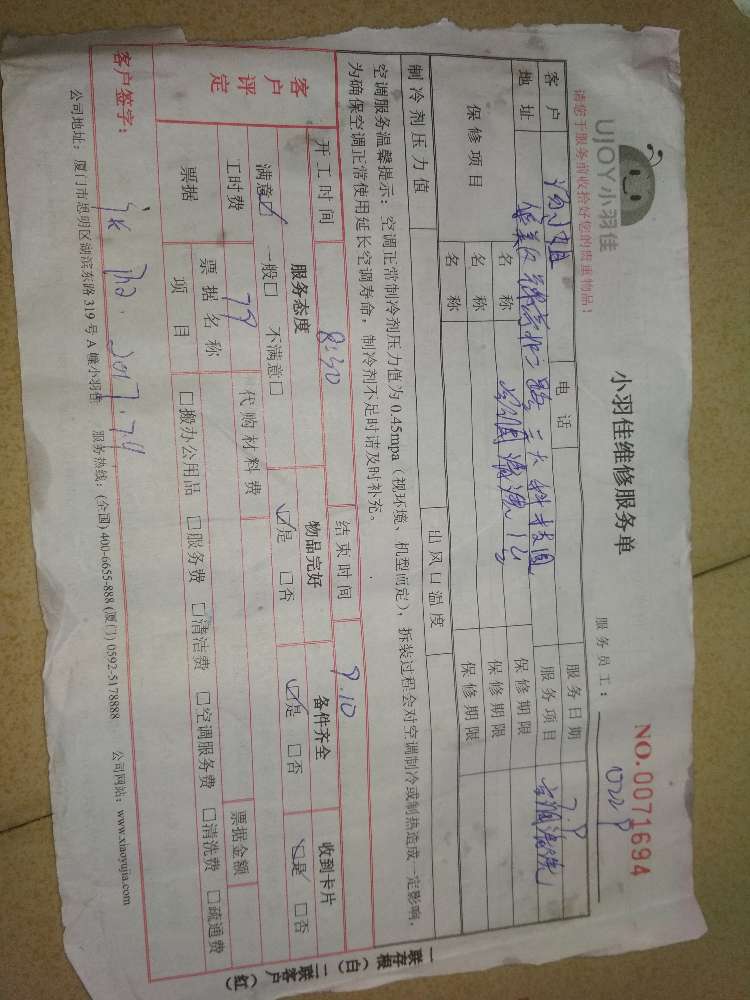 UJOY小羽佳
请您于服务前收拾好您的贵重物品!
小羽佳维修服务单
NO.0071694
服务员工:
客户 电话 服务日期 7.9
地址 服务项目 空调清洗
保修项目 名称 空调清洗1台 保修期限
名称 保修期限
名称 保修期限
制冷剂压力值 出风口温度
空调服务温馨提示:空调正常制冷剂压力值为0.45mpa(视环境、机型而定),拆装过程会对空调制冷或制热造成一定影响,
为确保空调正常使用延长空调寿命,制冷剂不足时请及时补充。
开工时间 8:30 结束时间 9.10
客户评定 服务态度 物品完好 备件齐全 收到卡片
满意☑ 一般□ 不满意□ ☑是 □否 ☑是 □否 ☑是 □否
工时费 79 代购材料费
票据 票据名称 票据金额
项目 □搬办公用品 □服务费 □清洁费 □空调服务费 □清洗费 □疏通费
客户签字: 2017.7.9
公司地址:厦门市思明区湖滨东路319号A幢小羽佳 服务热线:(全国)400-6655-888(厦门)0592-5178888 公司网站:www.xiaoyujia.com
一联存根(白)二联客户(红)